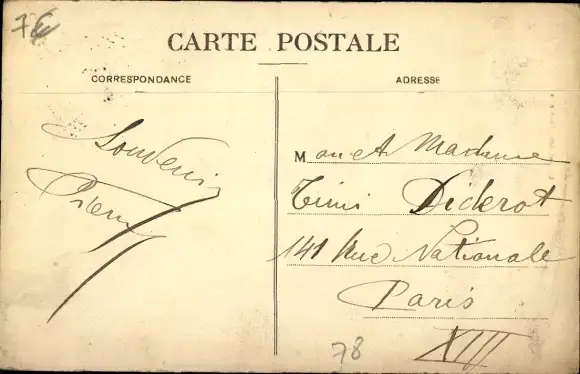 7€
CARTE POSTALE
CORRESPONDANCE
ADRESSE
Souvenir
Pierre
M on et Madame
Diderot
141 Rue Nationale
Paris
XIII
78